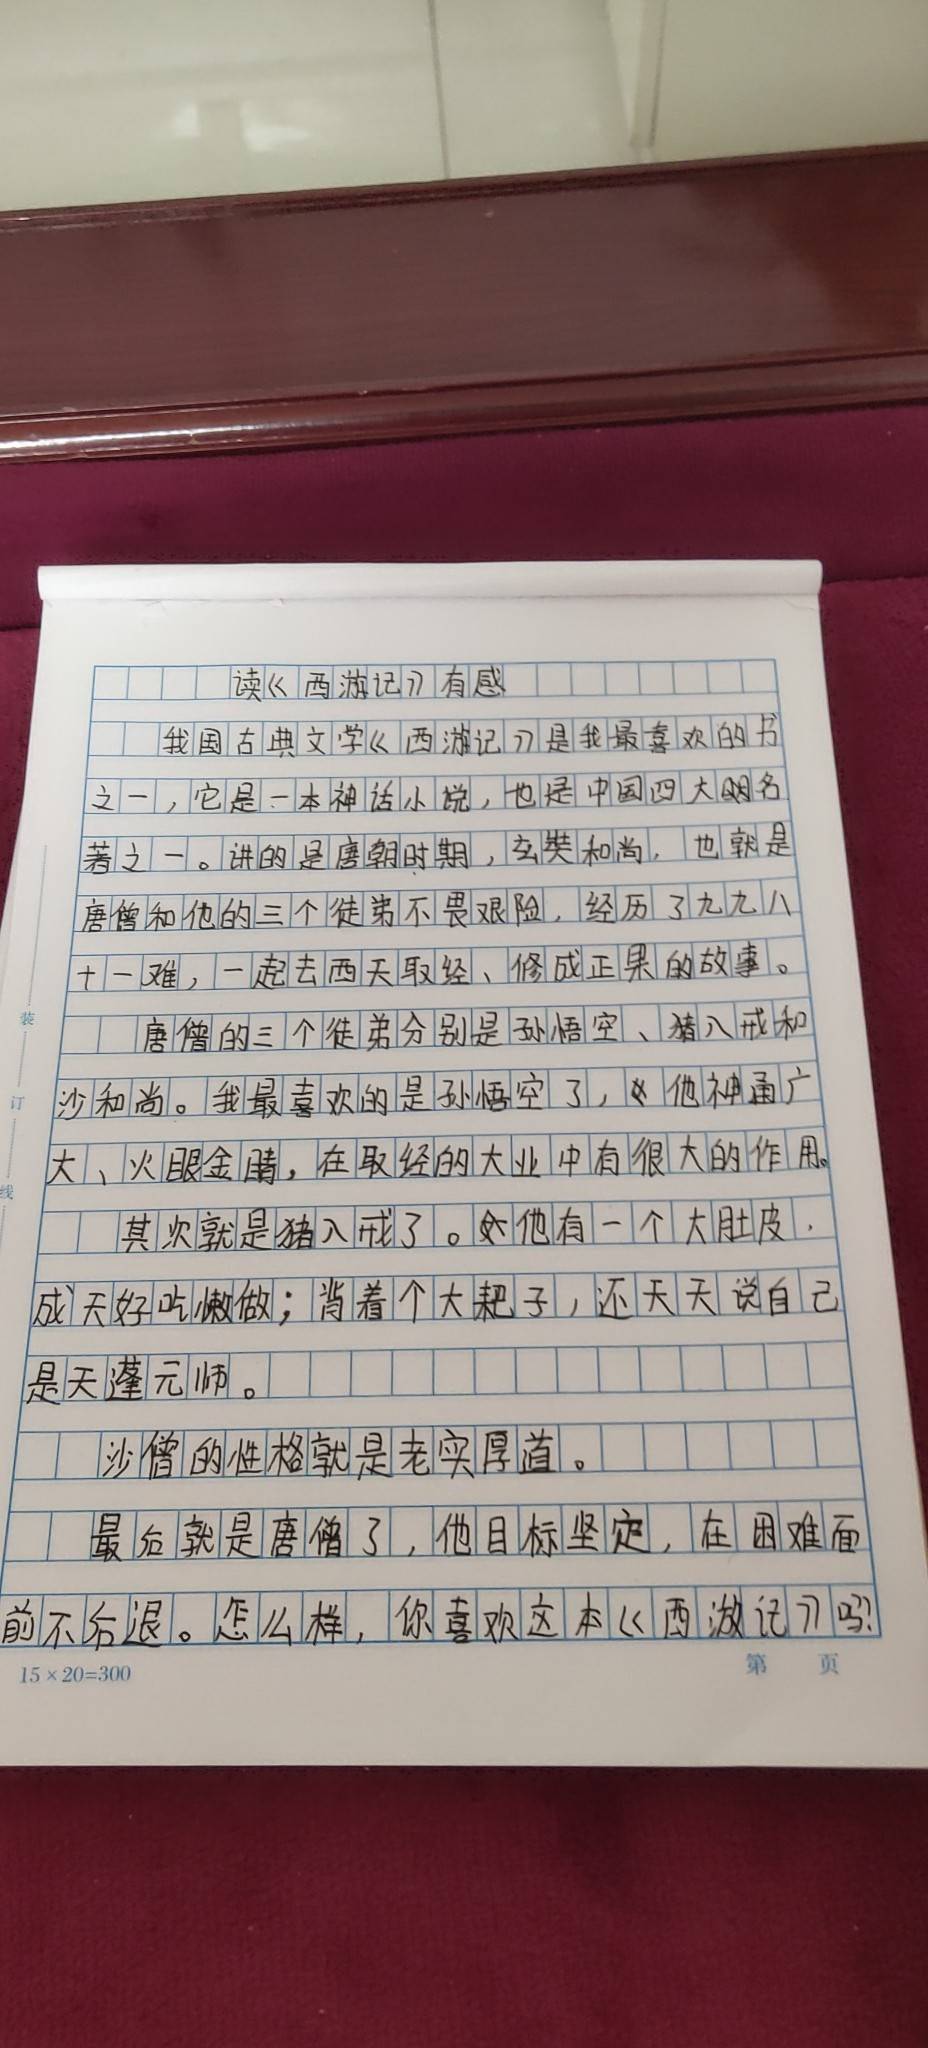 读《西游记》有感
我国古典文学《西游记》是我最喜欢的书
之一，它是一本神话小说，也是中国四大名
著之一。讲的是唐朝时期，玄奘和尚，也就是
唐僧和他的三个徒弟不畏艰险，经历了九九八
十一难，一起去西天取经、修成正果的故事。
唐僧的三个徒弟分别是孙悟空、猪八戒和
沙和尚。我最喜欢的是孙悟空了，他神通广
大、火眼金睛，在取经的大业中有很大的作用。
其次就是猪八戒了。他有一个大肚皮，
成天好吃懒做；背着个大耙子，还天天说自己
是天蓬元帅。
沙僧的性格就是老实厚道。
最后就是唐僧了，他目标坚定，在困难面
前不后退。怎么样，你喜欢这本《西游记》吗？
15×20=300
第 页
装
订
线